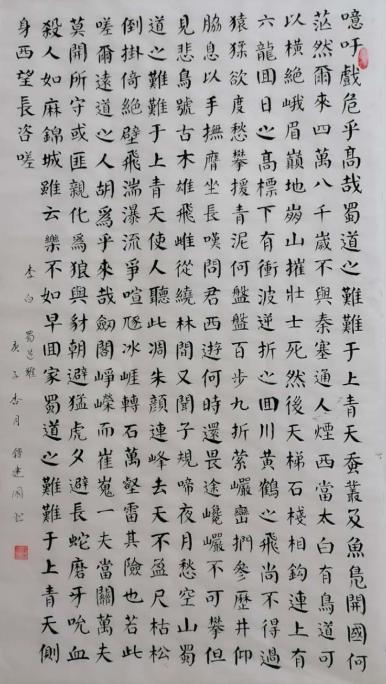 噫吁戲危乎高哉蜀道之難難于上青天蚕叢及魚鳧開國何
茫然爾來四萬八千歲不與秦塞通人煙西當太白有鳥道可
以橫絕峨眉巔地崩山摧壯士死然後天梯石棧相鈎連上有
六龍回日之高標下有衝波逆折之回川黃鶴之飛尚不得過
猿猱欲度愁攀援青泥何盤盤百步九折縈巖巒捫參歷井仰
脇息以手撫膺坐長嘆問君西遊何時還畏途巉巖不可攀但
見悲鳥號古木雄飛雌從繞林間又聞子規啼夜月愁空山蜀
道之難難于上青天使人聽此凋朱顏連峰去天不盈尺枯松
倒掛倚絕壁飛湍瀑流爭喧豗冰崖轉石萬壑雷其險也若此
嗟爾遠道之人胡為乎來哉劍閣崢嶸而崔嵬一夫當關萬夫
莫開所守或匪親化為狼與豺朝避猛虎夕避長蛇磨牙吮血
殺人如麻錦城雖云樂不如早回家蜀道之難難于上青天側
身西望長咨嗟
李白 蜀道難
庚子 月